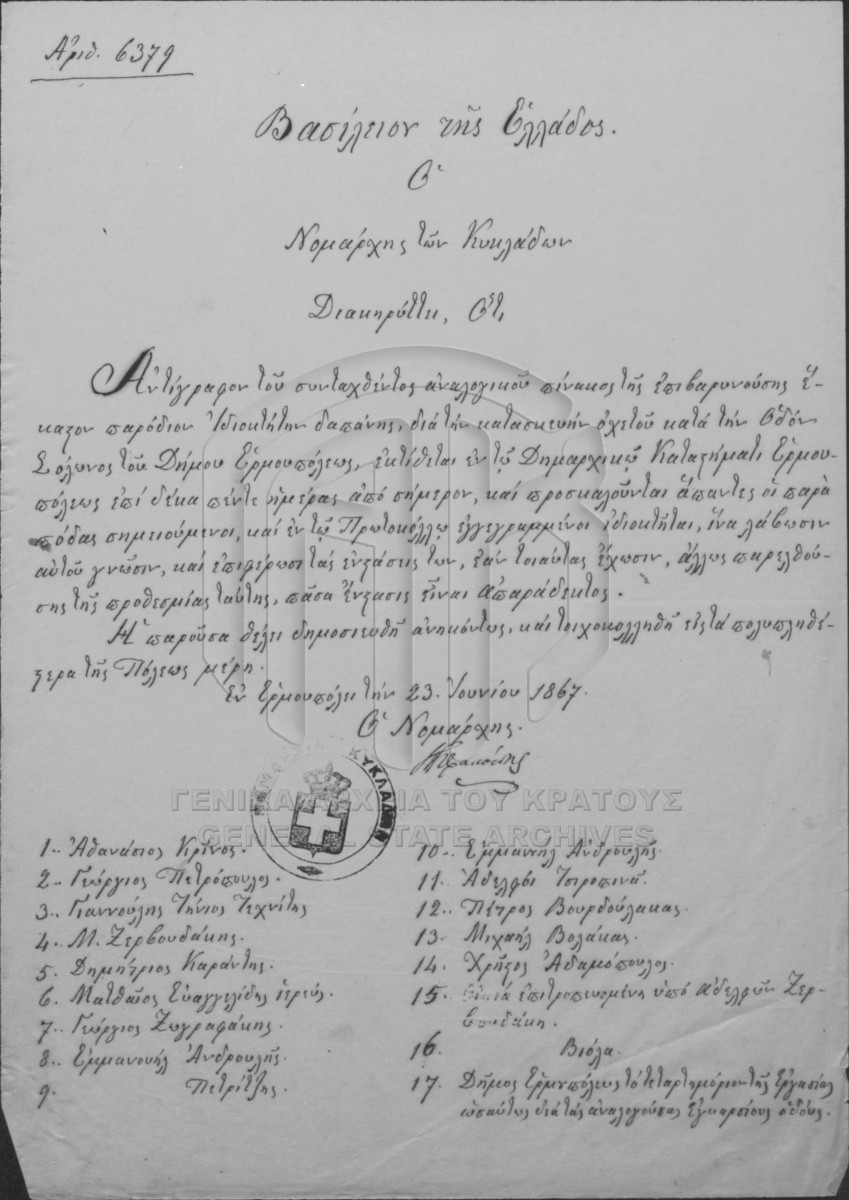 Ἀριθ. 6379
Βασίλειον τῆς Ἑλλάδος.
Ὁ
Νομάρχης τῶν Κυκλάδων
Διακηρύττει, Ὅτι
Ἀντίγραφον τοῦ συνταχθέντος ἀναλογικοῦ πίνακος τῆς ἐπιβαρυνούσης ἕ-
καστον παρόδιον ἰδιοκτήτην δαπάνης, διὰ τὴν κατασκευὴν ὀχετοῦ κατὰ τὴν Ὁδὸν
Σόλωνος τοῦ Δήμου Ἑρμουπόλεως, ἐκτίθεται ἐν τῷ Δημαρχικῷ Καταστήματι Ἑρμου-
πόλεως ἐπὶ δέκα πέντε ἡμέρας ἀπὸ σήμερον, καὶ προσκαλοῦνται ἅπαντες οἱ παρὰ
πόδας σημειούμενοι, καὶ ἐν τῷ Πρωτοκόλλῳ ἐγγεγραμμένοι ἰδιοκτῆται, ἵνα λάβωσιν
αὐτοῦ γνῶσιν, καὶ ἐπιφέρωσι τὰς ἐνστάσεις των, ἐὰν τοιαύτας ἔχωσιν, ἄλλως παρελθού-
σης τῆς προθεσμίας ταύτης, πᾶσα ἔνστασις εἶναι ἀπαράδεκτος.
Ἡ παροῦσα θέλει δημοσιευθῆ ἀνηκόντως, καὶ τοιχοκολληθῆ εἰς τὰ πολυπληθέ-
στερα τῆς Πόλεως μέρη.
Ἐν Ἑρμουπόλει τὴν 23. Ἰουνίου 1867.
Ὁ Νομάρχης.
ΚΥΚΛΑΔΩΝ
ΓΕΝΙΚΑ ΑΡΧΕΙΑ ΤΟΥ ΚΡΑΤΟΥΣ
GENERAL STATE ARCHIVES
1.. Ἀθανάσιος Κρῖνος.
2.. Γεώργιος Πετρόπουλος.
3.. Γιαννούλης Τήνιος Τεχνίτης
4.. Μ. Ζερβουδάκης.
5. Δημήτριος Καράντης.
6. Ματθαῖος Εὐαγγελίδης ἱερεύς.
7.. Γεώργιος Ζωγραφάκης.
8.. Ἐμμανουὴλ Ἀνδρουλῆς.
9. Πετρίτζης.
10.. Ἐμμανουὴλ Ἀνδρουλῆς.
11. Ἀδελφοὶ Τσιροπινᾶ.
12.. Πέτρος Βουρδούλακας.
13. Μιχαὴλ Βολάκας.
14. Χρῆστος Ἀδαμόπουλος.
15. Οἰκία ἐπιτροπευομένη ὑπὸ ἀδελφῶν Ζερ-
βουδάκη.
16. Βιόλα.
17. Δῆμος Ἑρμουπόλεως τὸ τεταρτημόριον τῆς ἐργασίας
ὡσαύτως διὰ τὰς ἀναλογούσας ἐγκαρσίους ὁδούς.